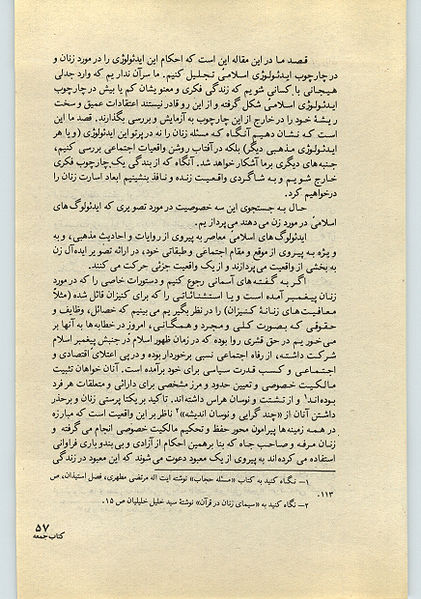 قصد ما در این مقاله این است که احکام این ایدئولوژی را در مورد زنان و
در چارچوب ایدئولوژی اسلامی تحلیل کنیم. ما سرآن نداریم که وارد جدلی
هیجانی با کسانی شویم که زندگی فکری و معنویشان کم یا بیش در چارچوب
ایدئولوژی اسلامی شکل گرفته و از این رو قادر نیستند اعتقادات عمیق و سخت
ریشهٔ خود را در خارج از این چارچوب به آزمایش و بررسی بگذارند. قصد ما این
است که نشان دهیم آنگاه که مسئله زنان را نه در پرتو این ایدئولوژی (و یا هر
ایدئولوژی مذهبی دیگر) بلکه در آفتاب روشن واقعیات اجتماعی بررسی کنیم،
جنبه‌های دیگری برما آشکار خواهد شد. آنگاه که از بندگی یک چارچوب فکری
خارج شویم و به شاگردی واقعیت زنده و نافذ بنشینیم ابعاد اسارت زنان را
درخواهیم کرد.
حال به جستجوی این سه خصوصیت در مورد تصویری که ایدئولوگ های
اسلامی در مورد زن می دهند می‌پردازیم.
ایدئولوگ های اسلامی معاصر به پیروی از روایات و احادیث مذهبی، و به
ویژه به پیروی از موقع و مقام اجتماعی و طبقاتی خود، در ارائه تصویر ایده‌آل زن
به بخشی از واقعیت می‌پردازند و از یک واقعیت جزئی حرکت می کنند.
اگر به گفته‌های آسمانی رجوع کنیم و دستورات خاصی را که در مورد
زنان پیغمبر آمده است و یا استثنائاتی را که برای کنیزان قائل شده (مثلاً
معافیت‌های زنانهٔ کنیزان) را در نظر بگیریم می بینیم که خصائل، وظایف و
حقوقی که بصورت کلی و مجرد و همگانی، امروز در خطابه‌ها به آنها بر
می خوریم در حق قشری روا بوده که در زمان ظهور اسلام در جنبش پیغمبر اسلام
شرکت داشته، از رفاه اجتماعی نسبی برخوردار بوده و در پی اعتلای اقتصادی و
اجتماعی و کسب قدرت سیاسی برای خود برآمده است. آنان خواهان تثبیت
مالکیت خصوصی و تعیین حدود و مرز مشخصی برای دارائی و متعلقات هر فرد
بوده‌اند۱ و از تشتت و نوسان هراس داشته‌اند. تاکید بر یکتا پرستی زنان و برحذر
داشتن آنان از «چند گرایی و نوسان اندیشه»۲ ناظر بر این واقعیت است که مبارزه
در همه زمینه‌ها پیرامون محور حفظ و تحکیم مالکیت خصوصی انجام می‌گرفته و
زنان مرفه و صاحب جاه که بنا برهمین احکام از آزادی و بی بندوباری فراوانی
استفاده می کرده‌اند به پیروی از یک معبود دعوت می شوند که این معبود در زندگی
۱— نگاه کنید به کتاب «مسئله حجاب» نوشته آیت اله مرتضی مطهری، فصل استیذان، ص
۱۱۳.
۲— نگاه کنید به «سیمای زنان در قرآن» نوشتهٔ سید خلیل خلیلیان ص ۱۵.
۵۷
کتاب جمعه